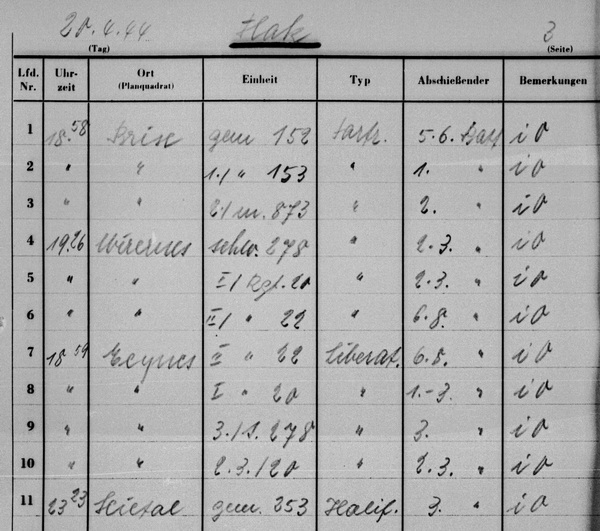 20.4.44 Flak 3
(Tag) (Seite)
Lfd. Nr. Uhr-zeit Ort (Planquadrat) Einheit Typ Abschießender Bemerkungen
1 18.58 gem 152 5.-6. Batt i O
2 " " 1./ " 153 " 1. " i O
3 " " 2./ 873 " 2. " i O
4 19.26 schw. 278 " 2-3. " i O
5 " " I/ Rgt. 20 " 2.-3. " i O
6 " " II/ " 22 " 6.-8. " i O
7 18 59 II " 22 Liberat. 6.-8. " i O
8 " " I " 20 " 1.-3. " i O
9 " " 3./s. 278 " 3. " i O
10 " " 2.3./20 " 2.3. " i O
11 23 23 gem. 253 Halif. 3. " i O